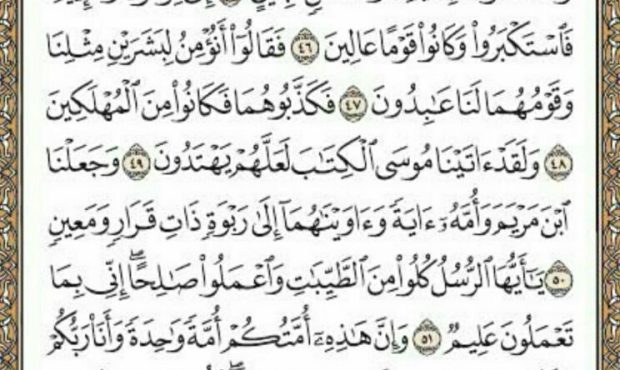 فَٱسْتَكْبَرُوا۟ وَكَانُوا۟ قَوْمًا عَالِينَ ٤٦ فَقَالُوٓا۟ أَنُؤْمِنُ لِبَشَرَيْنِ مِثْلِنَا
وَقَوْمُهُمَا لَنَا عَٰبِدُونَ ٤٧ فَكَذَّبُوهُمَا فَكَانُوا۟ مِنَ ٱلْمُهْلَكِينَ
٤٨ وَلَقَدْ ءَاتَيْنَا مُوسَى ٱلْكِتَٰبَ لَعَلَّهُمْ يَهْتَدُونَ ٤٩ وَجَعَلْنَا
ٱبْنَ مَرْيَمَ وَأُمَّهُۥٓ ءَايَةً وَءَاوَيْنَٰهُمَآ إِلَىٰ رَبْوَةٍ ذَاتِ قَرَارٍ وَمَعِينٍ
٥٠ يَٰٓأَيُّهَا ٱلرُّسُلُ كُلُوا۟ مِنَ ٱلطَّيِّبَٰتِ وَٱعْمَلُوا۟ صَٰلِحًا ۖ إِنِّى بِمَا
تَعْمَلُونَ عَلِيمٌ ٥١ وَإِنَّ هَٰذِهِۦٓ أُمَّتُكُمْ أُمَّةً وَٰحِدَةً وَأَنَا۠ رَبُّكُمْ